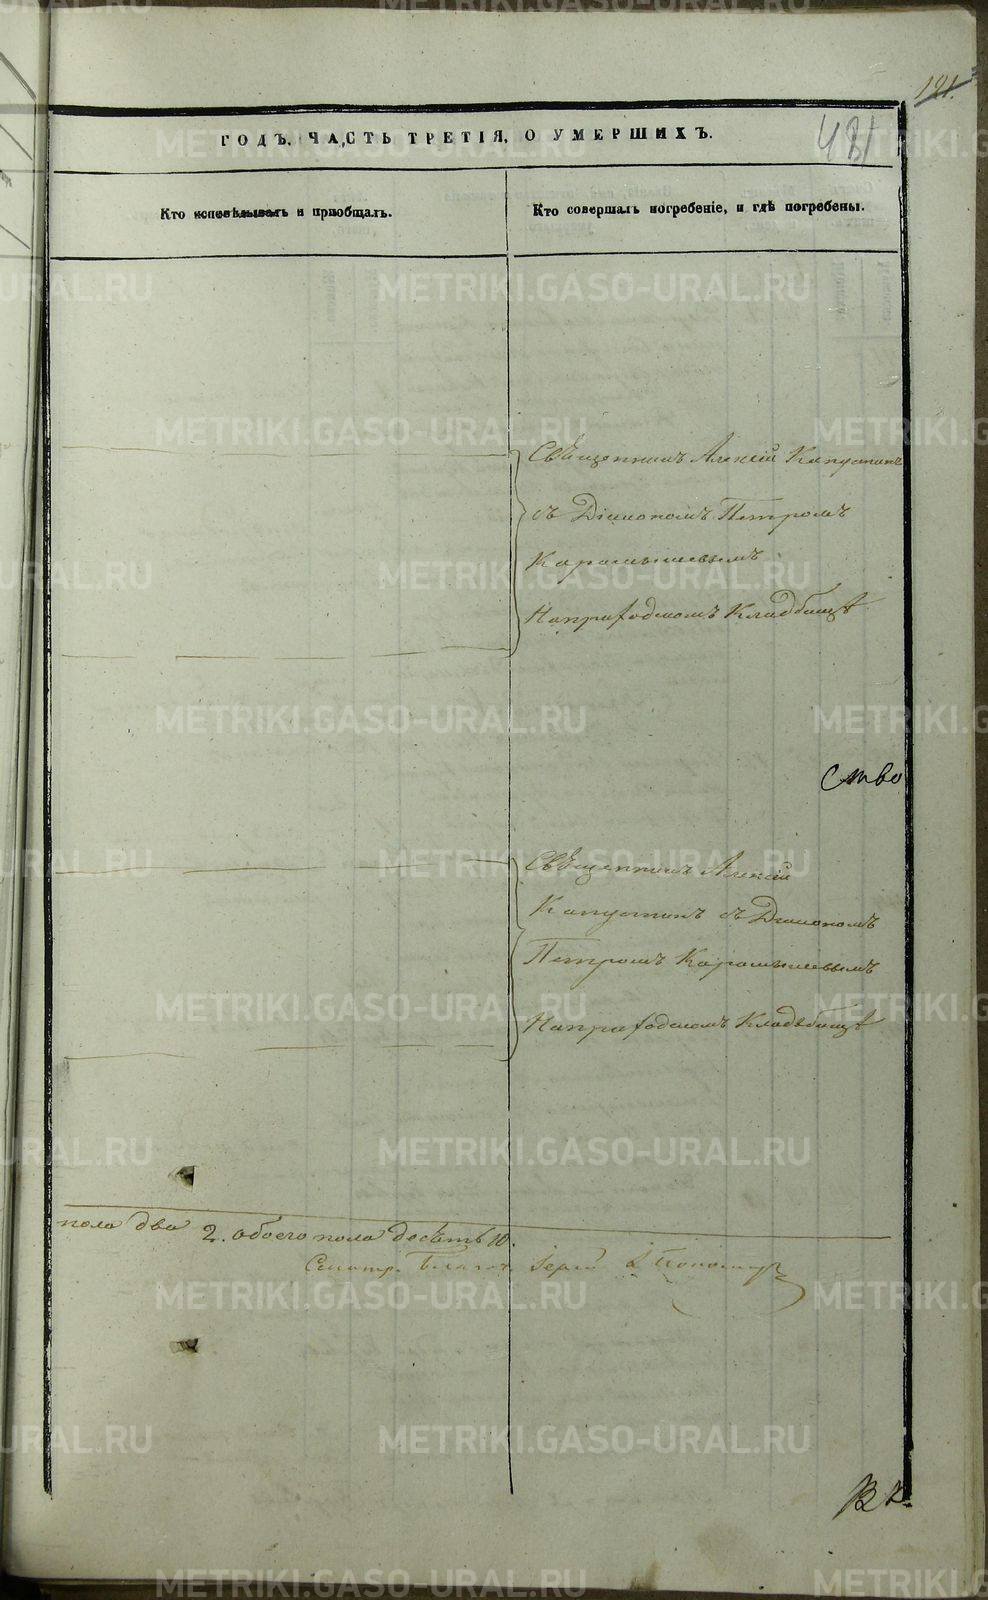 121.
431
ГОДЪ. ЧАСТЬ ТРЕТІЯ, О УМЕРШИХЪ.
Кто исповѣдывалъ и пріобщалъ.
Кто совершалъ погребеніе, и гдѣ погребены.
Священникъ Алексій Капустинъ
съ Діакономъ Петромъ
Карамышевымъ
На приходскомъ Кладбищѣ
ство
Священникъ Алексій
Капустинъ съ Діакономъ
Петромъ Карамышевымъ
На приходскомъ Кладбищѣ
пола два 2. обоего пола десѣть 10.
METRIKI.GASO-URAL.RU